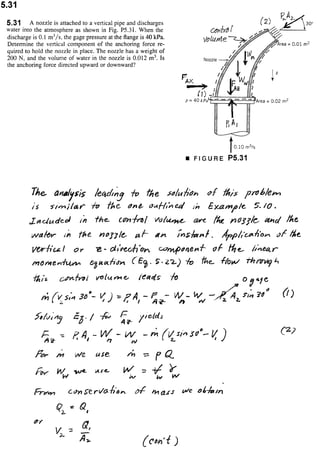 5.31
5.31 A nozzle is attached to a vertical pipe and discharges
water into the atmosphere as shown in Fig. P5.31. When the
discharge is 0.1 m³/s, the gage pressure at the flange is 40 kPa.
Determine the vertical component of the anchoring force re-
quired to hold the nozzle in place. The nozzle has a weight of
200 N, and the volume of water in the nozzle is 0.012 m³. Is
the anchoring force directed upward or downward?
control
volume
(2)
P₂A₂
30°
Area = 0.01 m²
Nozzle
Wn
Ww
z
FAx
FAz
(1)
p = 40 kPa
Area = 0.02 m²
P₁A₁
0.10 m³/s
■ FIGURE P5.31
The analysis leading to the solution of this problem
is similar to the one outlined in Example 5.10.
Included in the control volume are the nozzle and the
water in the nozzle at an instant. Application of the
vertical or z-direction component of the linear
momentum equation (Eq. 5.22) to the flow through
this control volume leads to
ṁ(V₂ sin 30° - V₁) = P₁A₁ - F_Az - Wn - Ww - P₂A₂ sin 30° (1)
0 gage
Solving Eq. 1 for F_Az yields
F_Az = P₁A₁ - Wn - Ww - ṁ(V₂ sin 30° - V₁) (2)
For ṁ we use ṁ = ρQ
For Ww we use Ww = V̶w γw
From conservation of mass we obtain
Q₂ = Q₁
or
V₂ = Q₁/A₂
(con't)